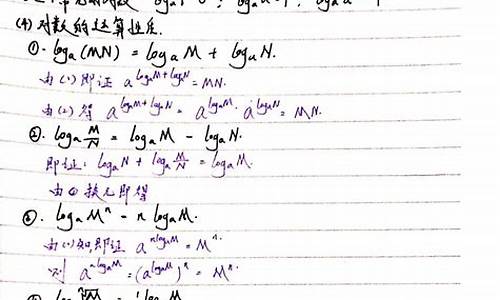 (4) 对数的运算性质.
①. logₐ(MN) = logₐM + logₐN.
由(1)即证 a^(logₐM+logₐN) = MN.
由(2)得 a^(logₐM+logₐN) = a^(logₐM)·a^(logₐN) = MN.
②. logₐ M/N = logₐM - logₐN.
即证: logₐN + logₐ M/N = logₐM.
由①换元即得
③. logₐMⁿ = n logₐM.
由(1)知,即证 a^(nlogₐM) = Mⁿ.
则 a^(nlogₐM) = (a^(logₐM))ⁿ = Mⁿ.